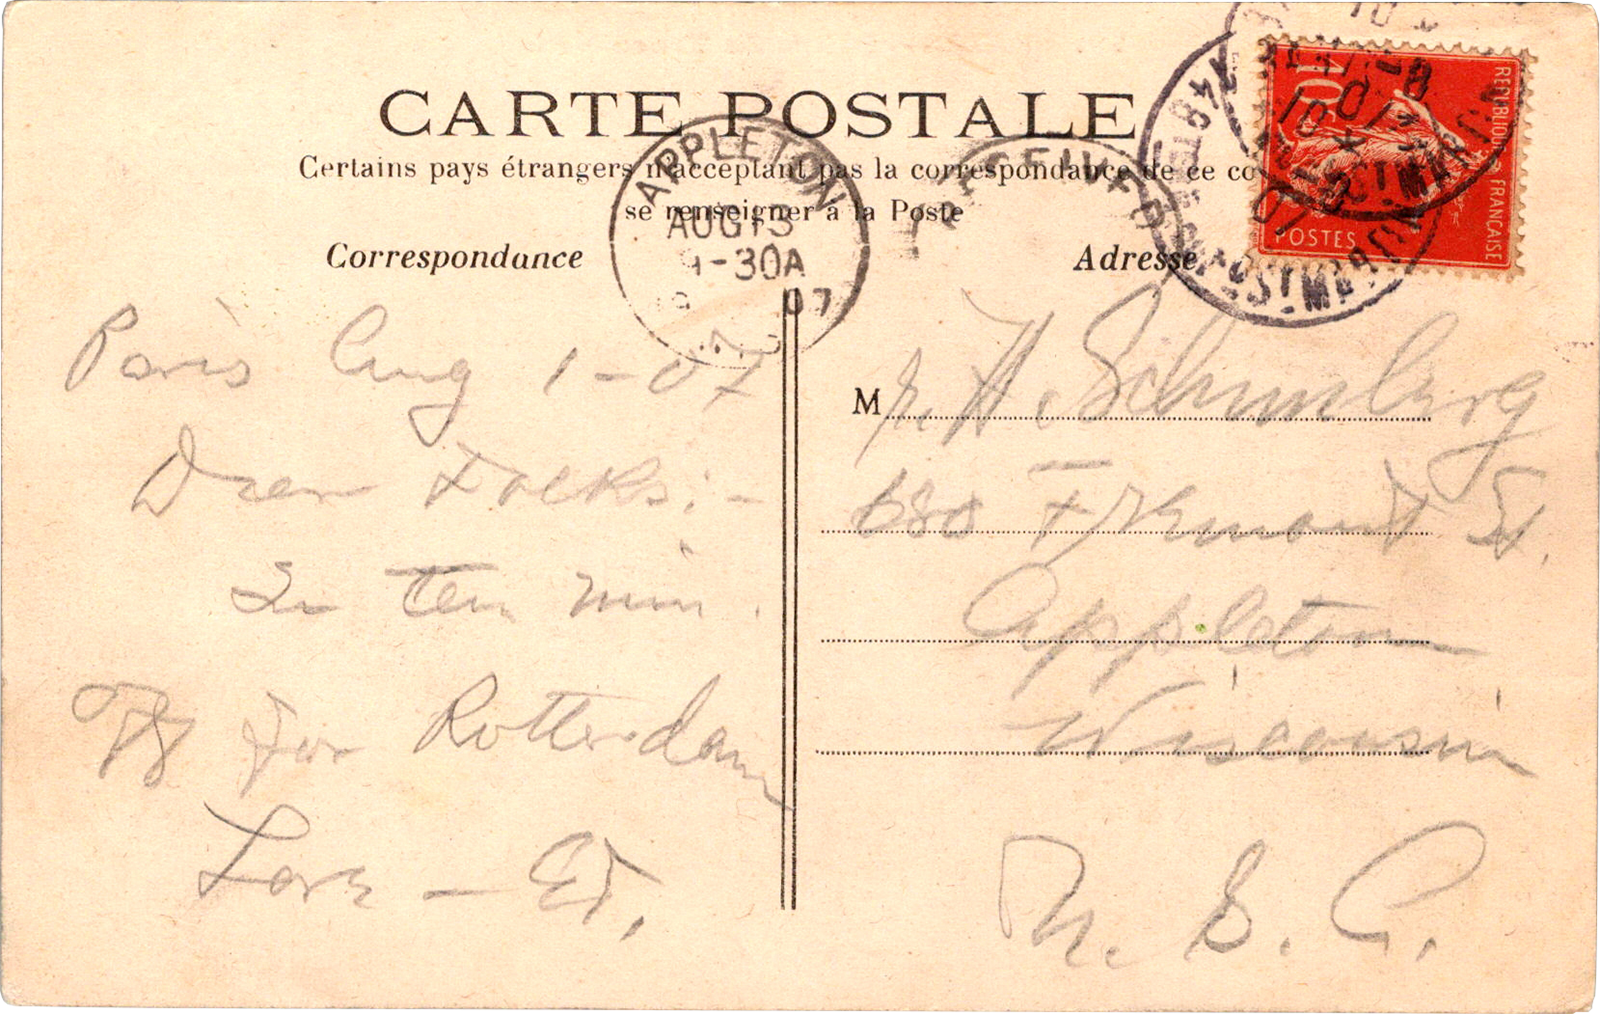 CARTE POSTALE
Certains pays étrangers n'acceptant pas la correspondance de ce co
se renseigner à la Poste
Correspondance
Adresse
APPLETON
AUG 13
-30A
07
RECEIVED
REPUBLIQUE FRANÇAISE
10
POSTES
Paris Aug 1-07
Dear Folks:-
In ten min.
Off for Rotterdam
Love - Ed.
Mr. H. Schomberg
680 Fremont St.
Appleton
Wisconsin
U. S. A.